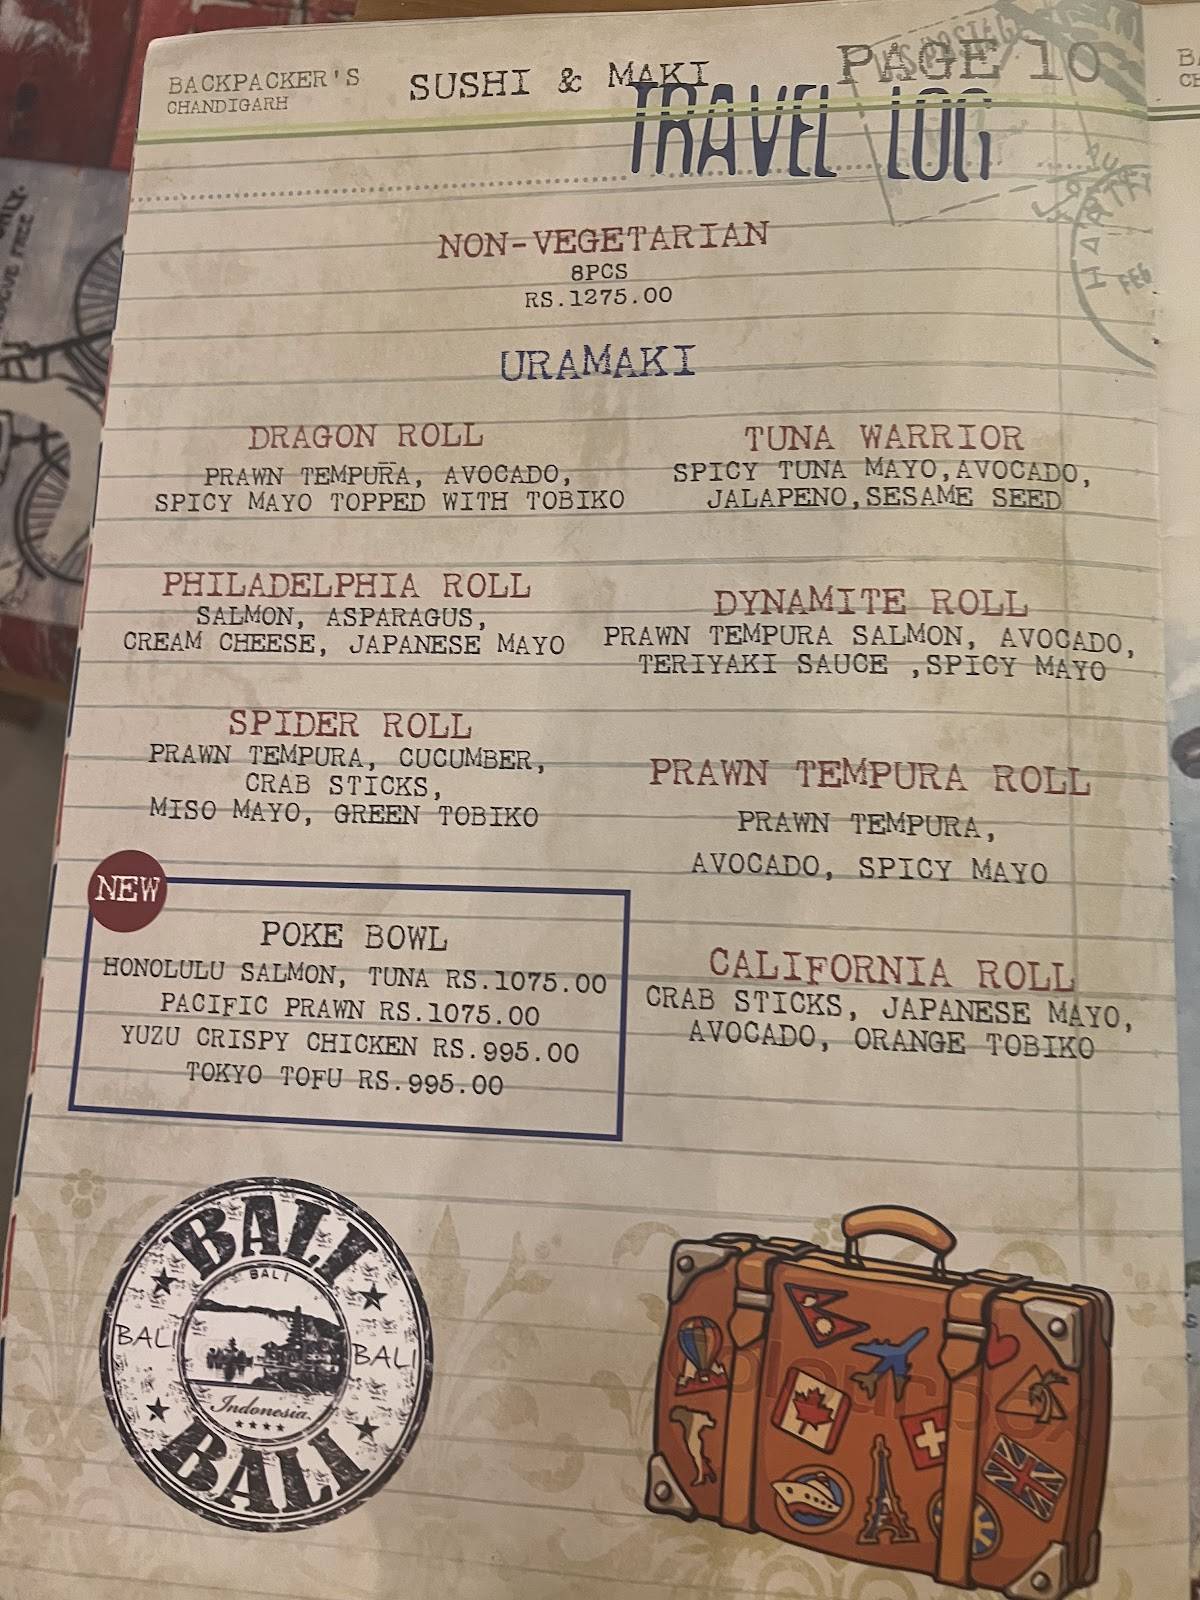 BACKPACKER'S
CHANDIGARH
SUSHI & MAKI
PAGE 10
TRAVEL LOG
NON-VEGETARIAN
8PCS
RS.1275.00
URAMAKI
DRAGON ROLL
PRAWN TEMPURA, AVOCADO,
SPICY MAYO TOPPED WITH TOBIKO
TUNA WARRIOR
SPICY TUNA MAYO,AVOCADO,
JALAPENO,SESAME SEED
PHILADELPHIA ROLL
SALMON, ASPARAGUS,
CREAM CHEESE, JAPANESE MAYO
DYNAMITE ROLL
PRAWN TEMPURA SALMON, AVOCADO,
TERIYAKI SAUCE ,SPICY MAYO
SPIDER ROLL
PRAWN TEMPURA, CUCUMBER,
CRAB STICKS,
MISO MAYO, GREEN TOBIKO
PRAWN TEMPURA ROLL
PRAWN TEMPURA,
AVOCADO, SPICY MAYO
NEW
POKE BOWL
HONOLULU SALMON, TUNA RS.1075.00
PACIFIC PRAWN RS.1075.00
YUZU CRISPY CHICKEN RS.995.00
TOKYO TOFU RS.995.00
CALIFORNIA ROLL
CRAB STICKS, JAPANESE MAYO,
AVOCADO, ORANGE TOBIKO
BALI
BALI
BALI
BALI
Indonesia
BALI
FEB